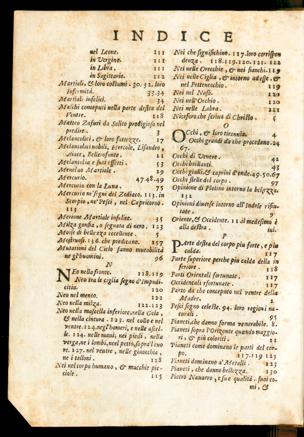 INDICE
nel Leone. 111
in Vergine. 111
in Libra. 111
in Sagittario. 112
Martiali, & lor costumi. 30. 32. loro
infermità. 33.34
Martiali infelici. 34
Maschi conceputi nella parte destra del
Ventre. 118
Matteo Zafuri da Solito prodigioso nel
predire. 3
Melancolici, & loro fatezze. 17
Melancolici nobili, Hercole, Lisandro,
Aiace, Bellerofonte. 11
Melancolia e suoi effetti. 11
Menelao Martiale. 29
Mercurio. 47.48.49
Mercurio con la Luna. 75
Mercurio ne' segni del Zodiaco. 113. in
Scorpio, ne' Pesci, nel Capricorno.
113
Merione Martiale infelice. 35
Milza gonfia, è segnata di nero. 123
Moise di bellezza eccellente. 7
Mostruosi. 156. che predicano. 157
Mutationi del Cielo fanno mutabilità
ne gl'huomini. 96
N
Neo nella fronte. 118.119
Neo tra le ciglia segno d'impudi-
citia.
Neo nel mento. 122
Neo nella milza. 122.123
Neo nella mascella inferiore, nella Gola,
& nella cintura. 123. nel collo e nel
ventre. 124. negl'humeri, e nelle asel-
le. 124. nelle mani, ne i piedi, nella
verga, ne i lombi, nel petto, sopra'l cuo
re. 127. nel ventre, nelle ginocchia,
ne i talloni. 128
Nei nel corpo humano, & macchie pic-
ciole. 115
Nei che significhino. 117. loro corrispon
denze. 118.119.120.121. 122
Nei nelle Orecchie, & nei fianchi. 119
Nei nelle Ciglia, & intorno ad esse, &
nel Pettenecchio. 119
Nei nel Naso. 120
Nei nell'Occhio. 120
Nei nelle Labra. 121
Niceforo che scrisse di Christo. 5
O
Occhi, & loro tirennia. 4
Occhi grandi da che procedano. 24
67.
Occhi di Venere. 42
Occhi brillanti. 42
Occhi gialli, & caprini d'onde. 49.50.67
Occhi stelle del corpo. 97
Opinione di Plotino intorno la bellezza.
132
Opinioni diverse intorno all'Indole risiu-
tate. 9
Oriente, & Occidente. 11 il medesimo è
alla destra.
P
Parte destra del corpo piu forte, e piu
calda. 117
Parte superiore perche piu calda della in
feriore. 118
Parti Orientali fortunate. 117
Occidentali sfortunate. 117
Parto da che concepito nel ventre della
Madre. 2
Pesci segno celeste. 94. loro regioni na-
turali. 95
Pianeti, che danno forma venerabile. 8.
Pianeti sopra l'Orizonte quando maggio
ri, & più coloriti. 11
Pianeti come dominano le parti del cor-
po. 117.119 125
Pianeti dominano a' Metalli. 125
Pianeti, che danno bellezza. 130
Pietro Nanarro, e sue qualità, fatti co-
mi, &